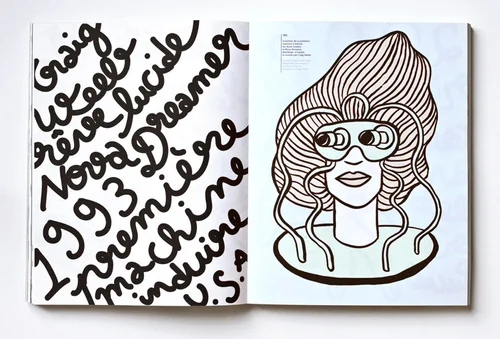 Craig
Weeb
rêve lucide
Nova Dreamer
1993
première
machine
induire
U.S.A